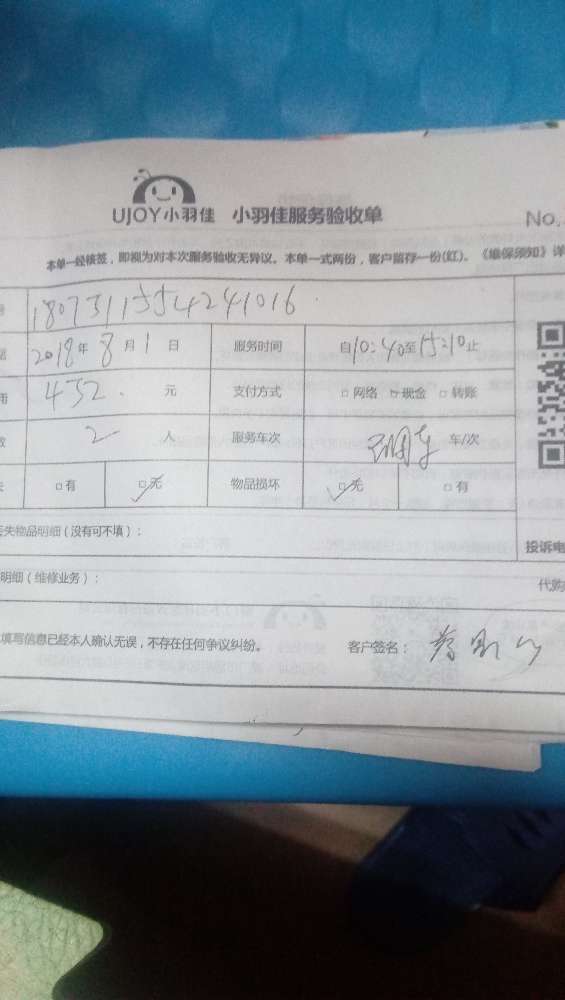 UJOY小羽佳 小羽佳服务验收单
No.
本单一经核签，即视为对本次服务验收无异议。本单一式两份，客户留存一份(红)。《维保须知》详
1807311554241016
2018年8月1日 服务时间 自10:40至15:10止
用 432. 元 支付方式 □网络 □现金 □转账
数 2 人 服务车次 车/次
失 □有 □无 物品损坏 □无 □有
丢失物品明细（没有可不填）：
投诉电
明细（维修业务）：
代购
填写信息已经本人确认无误，不存在任何争议纠纷。 客户签名：